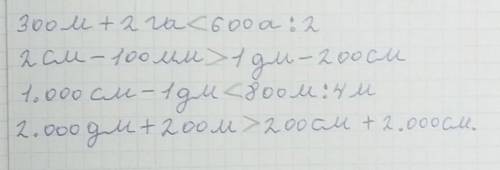 300м + 2га < 600а : 2
2см - 100мм > 1дм - 200см
1.000см - 1дм < 800м : 4м
2.000дм + 200м > 200см + 2.000см.